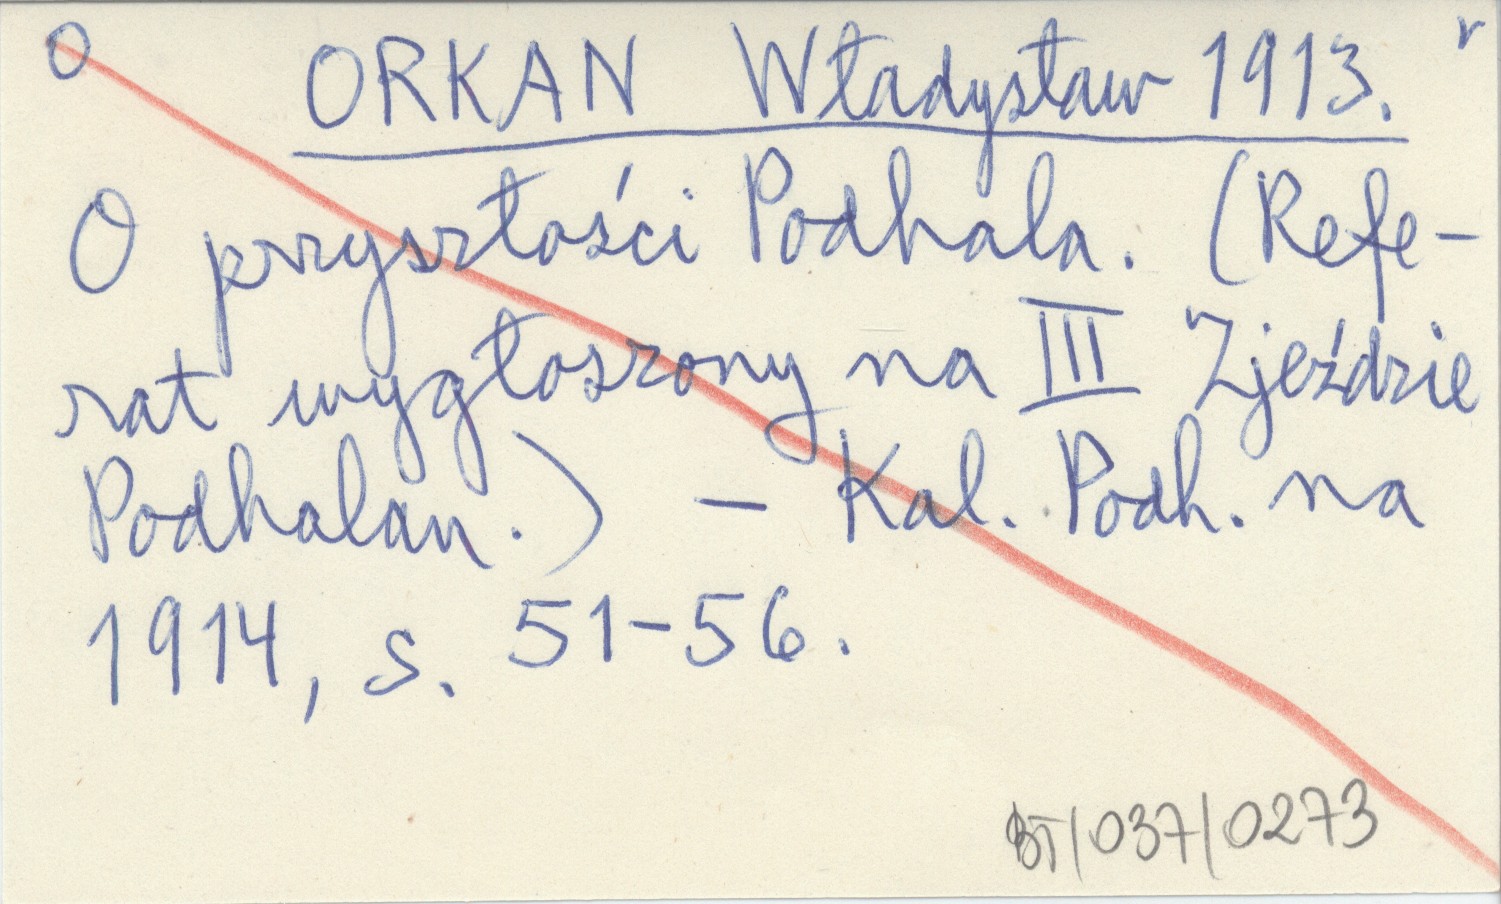 O ORKAN Władysław 1913. r
O przyszłości Podhala. (Refe-
rat wygłoszony na III Zjeździe
Podhalan.) - Kal. Podh. na
1914, s. 51-56.
BT/037/0273